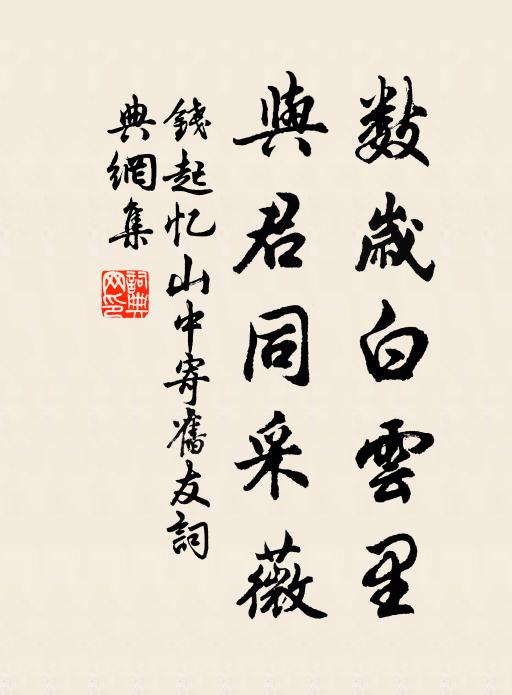 数歳白雲里
與君同采薇
錢起忆山中寄舊友詞
典網集
詞典網印